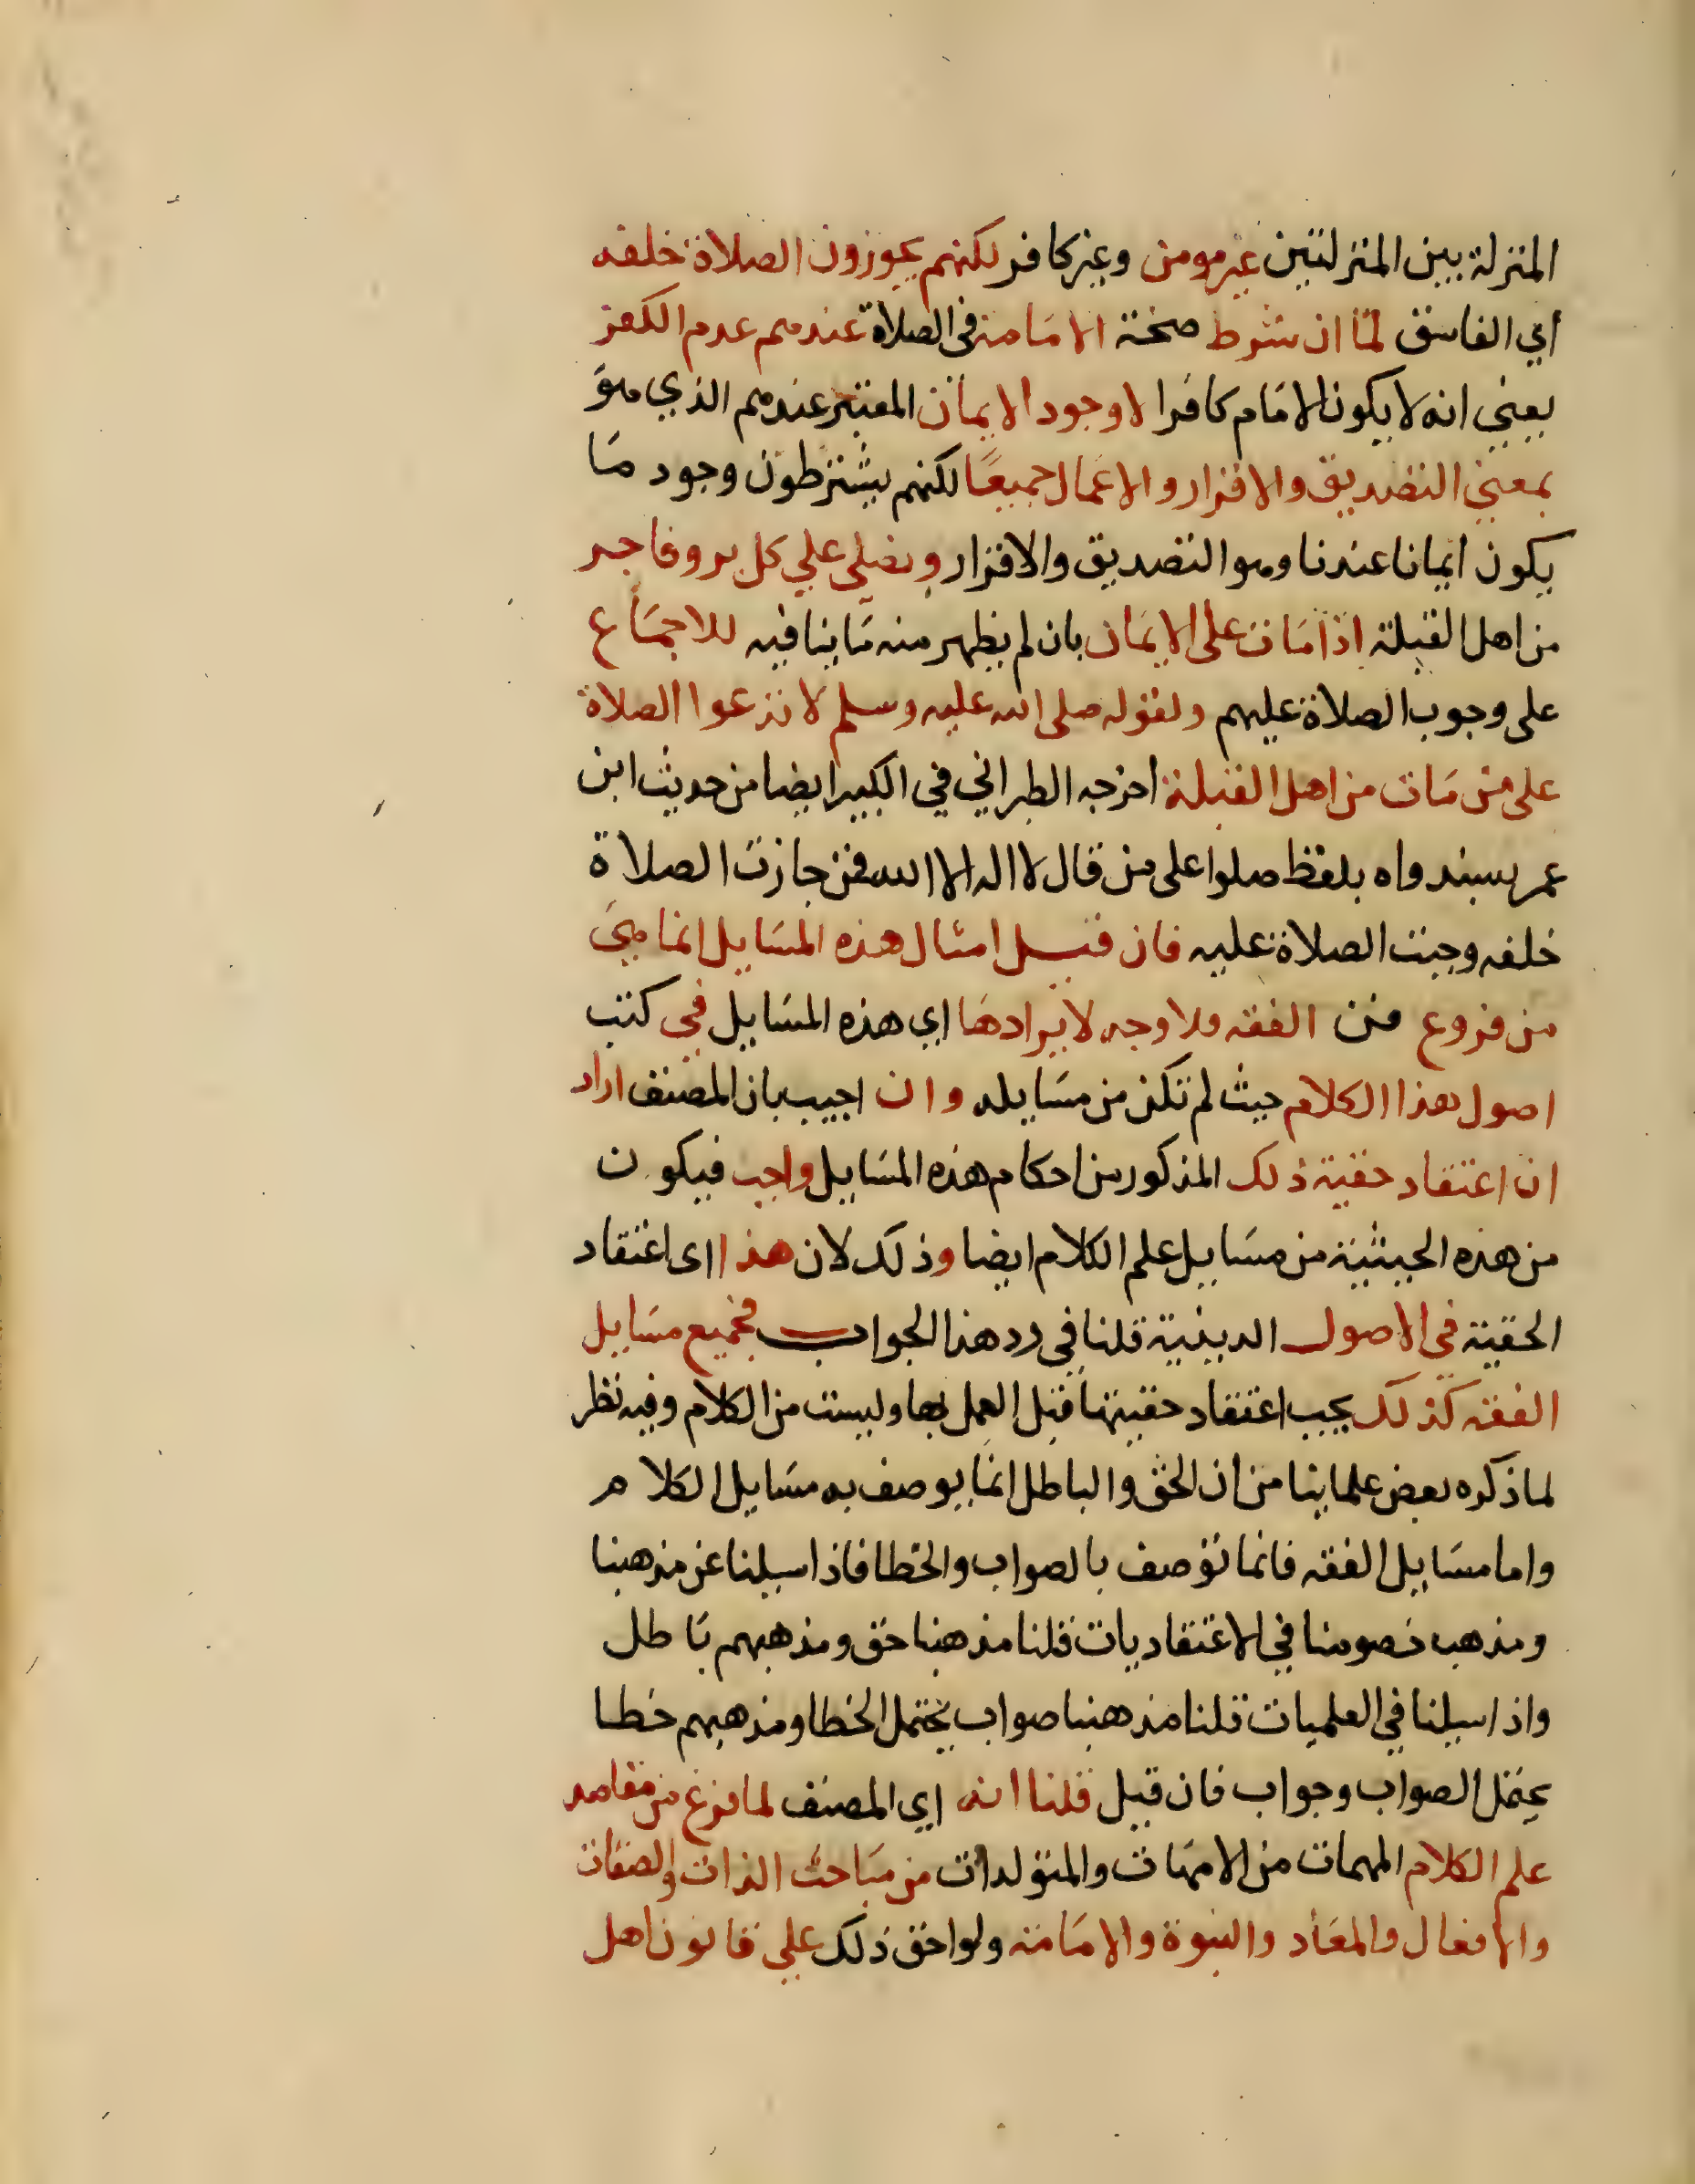 المنزلة بين المنزلتين غير مومن وغير كافر لكنهم يجوزون الصلاة خلفه
اي الفاسق لما ان شرط صحة الامامة في الصلاة عندهم عدم الكفر
يعني انه لا يكون الامام كافرا لا وجود الايمان المعتبر عندهم الذي هو
بمعني التصديق والاقرار والاعمال جميعًا لكنهم يشترطون وجود ما
يكون ايمانا عندنا وهو التصديق والاقرار ونصلي علي كل بر وفاجر
من اهل القبلة اذا مات على الايمان بان لم يظهر منه ما ينافيه للاجماع
على وجوب الصلاة عليهم ولقوله صلى الله عليه وسلم لا تدعوا الصلاة
على من مات من اهل القبلة اخرجه الطبراني في الكبير ايضا من حديث ابن
عمر بسند واه بلفظ صلوا على من قال لا اله الا الله فمن جازت الصلاة
خلفه وجبت الصلاة عليه فان قيل امثال هذه المسايل انما هي
من فروع فن الفقه فلا وجه لايرادها اي هذه المسايل في كتب
اصول هذا الكلام حيث لم تكن من مسايله وان اجيب بان المصنف اراد
ان اعتقاد حقية ذلك المذكور من احكام هذه المسايل واجب فيكون
من هذه الحيثية من مسايل علم الكلام ايضا وذلك لان هذا اى اعتقاد
الحقية في الاصول الدينية قلنا في رد هذا الجواب فجميع مسايل
الفقه كذلك يجب اعتقاد حقيتها قبل العمل بها وليست من الكلام وفيه نظر
لما ذكره بعض علماينا من ان الحق والباطل انما يوصف به مسايل الكلام
واما مسايل الفقه فانما توصف بالصواب والخطا فاذا سيلنا عن مذهبنا
ومذهب خصومنا في الاعتقاديات قلنا مذهبنا حق ومذهبهم باطل
واذا سيلنا في العلميات قلنا مذهبنا صواب يحتمل الخطا ومذهبهم خطا
يحتمل الصواب وجواب فان قيل قلنا انه اي المصنف لما فرغ من مقاصد
علم الكلام المهمات من الامهات والمتولدات من مباحث الذات والصفات
والافعال والمعاد والنبوة والامامة ولواحق ذلك علي قانون اهل